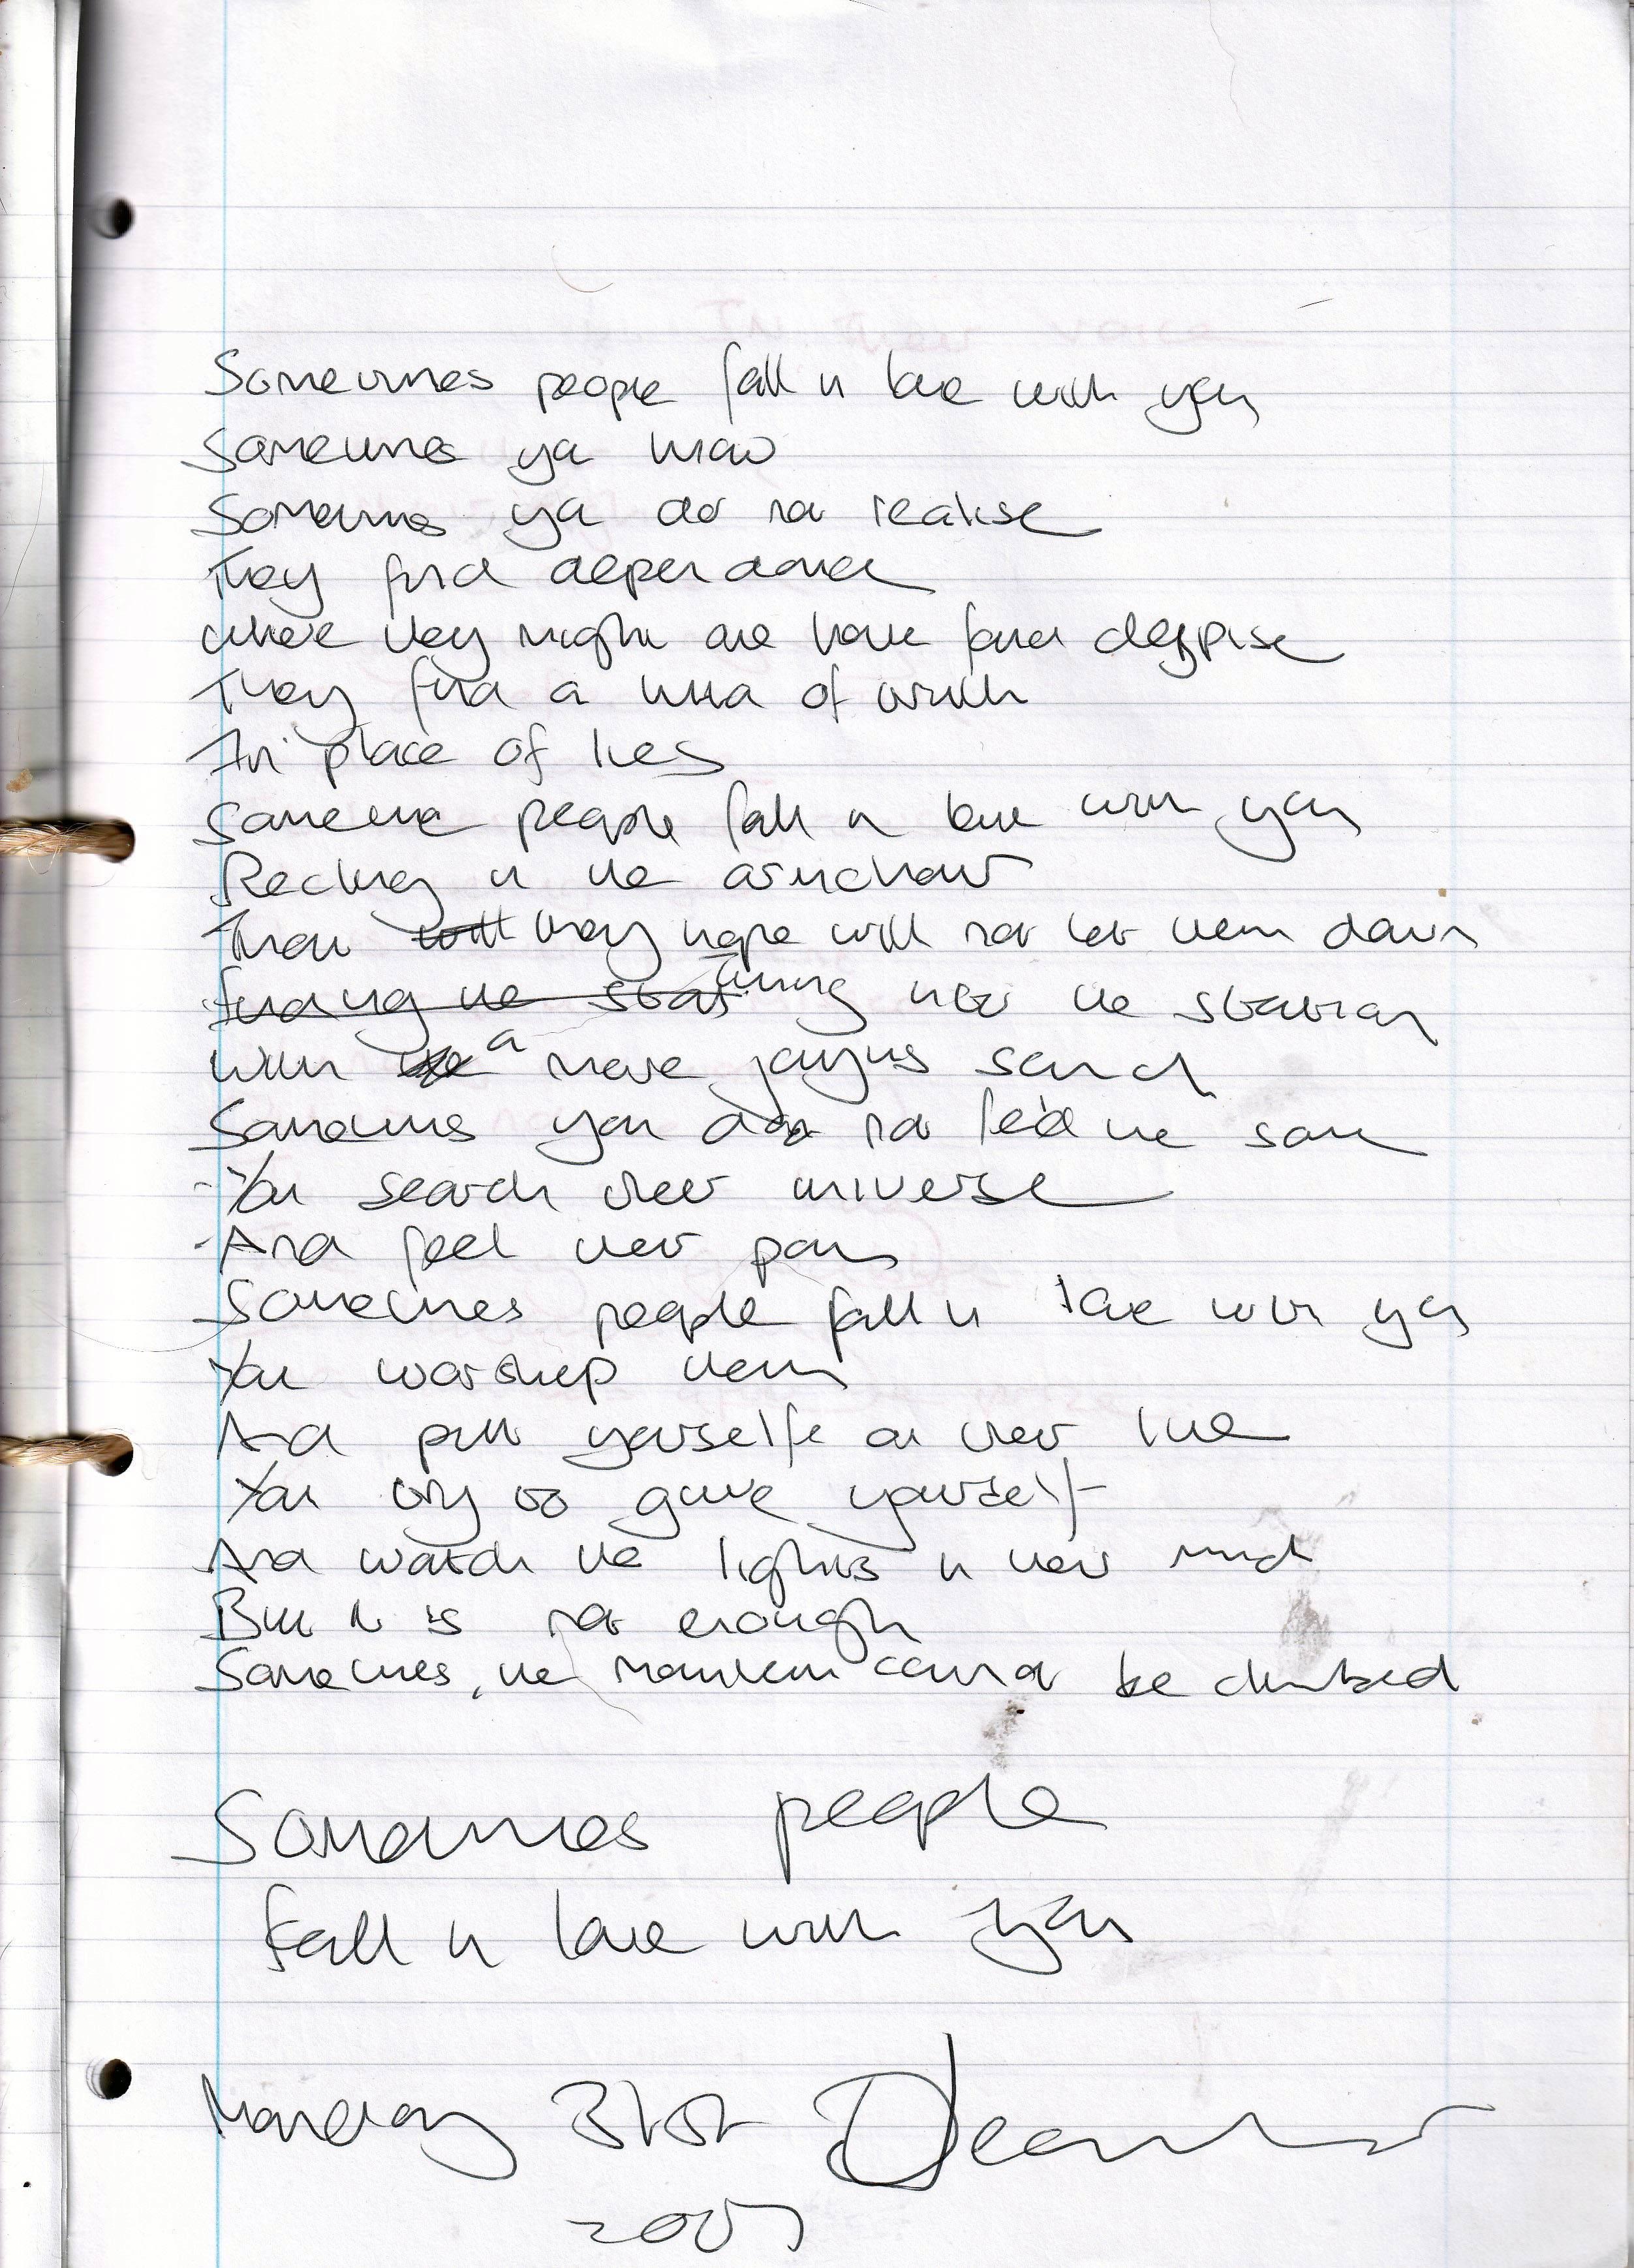 Sometimes people fall in love with you
Sometimes you know
Sometimes you do not realise
They find dependance
where they might have found despise
They find a kind of truth
In place of lies
Sometimes people fall in love with you
Reclining in the armchair
That they hope will not let them down
tuning into the station
With a more joyus sound
Sometimes you do not feel the same
You search their universe
And feel their pain
Sometimes people fall in love with you
You worship them
And put yourselfe on their line
You try to give yourself
And watch the lights in their mind
But it is not enough
Sometimes, the mountain cannot be climbed
Sometimes people
Fall in love with you
Monday 31st December
2007